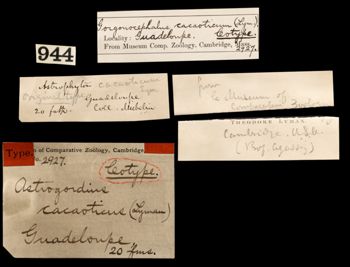 944
Gorgonocephalus cacaoticum (Lym.)
Locality: Guadeloupe. Cotype.
From Museum Comp. Zoology, Cambridge, Mass.
2927.
Astrophyton cacaoticum
Original type Lym
Guadeloupe
20 fath. Coll.
from
Museum of
Comparative Zoology
THEODORE LYMAN
Cambridge. U.S.A.
(Prof Agassiz)
Type. of Comparative Zoology, Cambridge,
No. 2927.
Cotype.
Astrogordius
cacaoticus (Lyman)
Guadeloupe
20 fms.